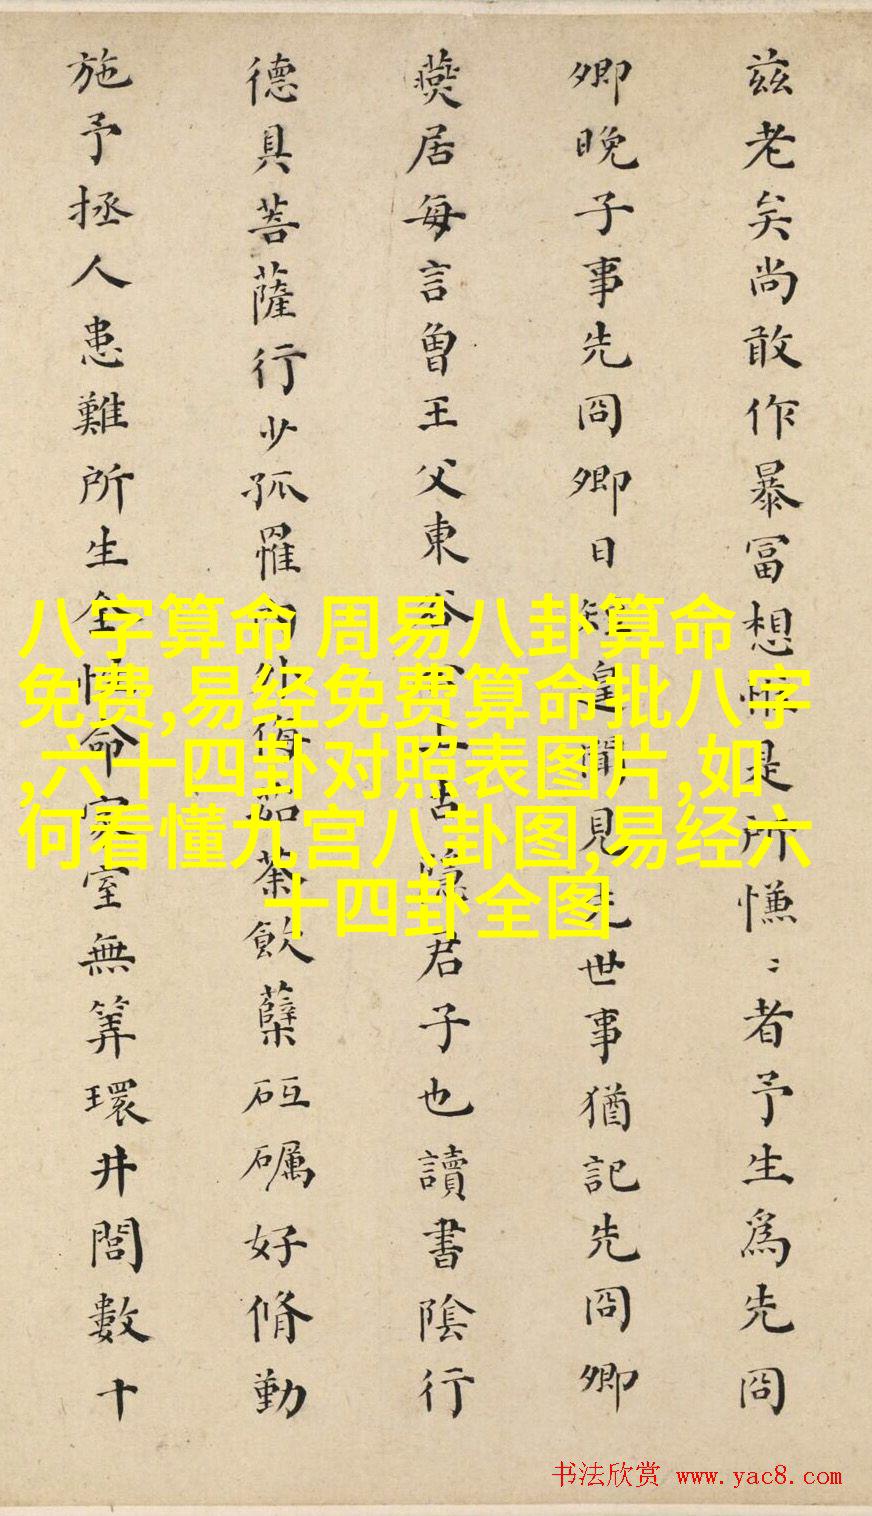 兹老矣尚敢作暴富想惟是所慊〻者予生為先冏
卿晚子事先冏卿日短遑聞見先世事猶記先冏卿
燕居每言曾王父東谷公古隱君子也讀書陰行
德具菩薩行少孤罹內外侮茹荼飲蘖砥礪好脩勤
施予拯人患難所生全性命家室無筭環井閭數十
八字算命 周易八卦算命
免费,易经免费算命批八字
,六十四卦对照表图片,如
何看懂九宫八卦图,易经六
十四卦全图
书法欣赏 www.yac8.com